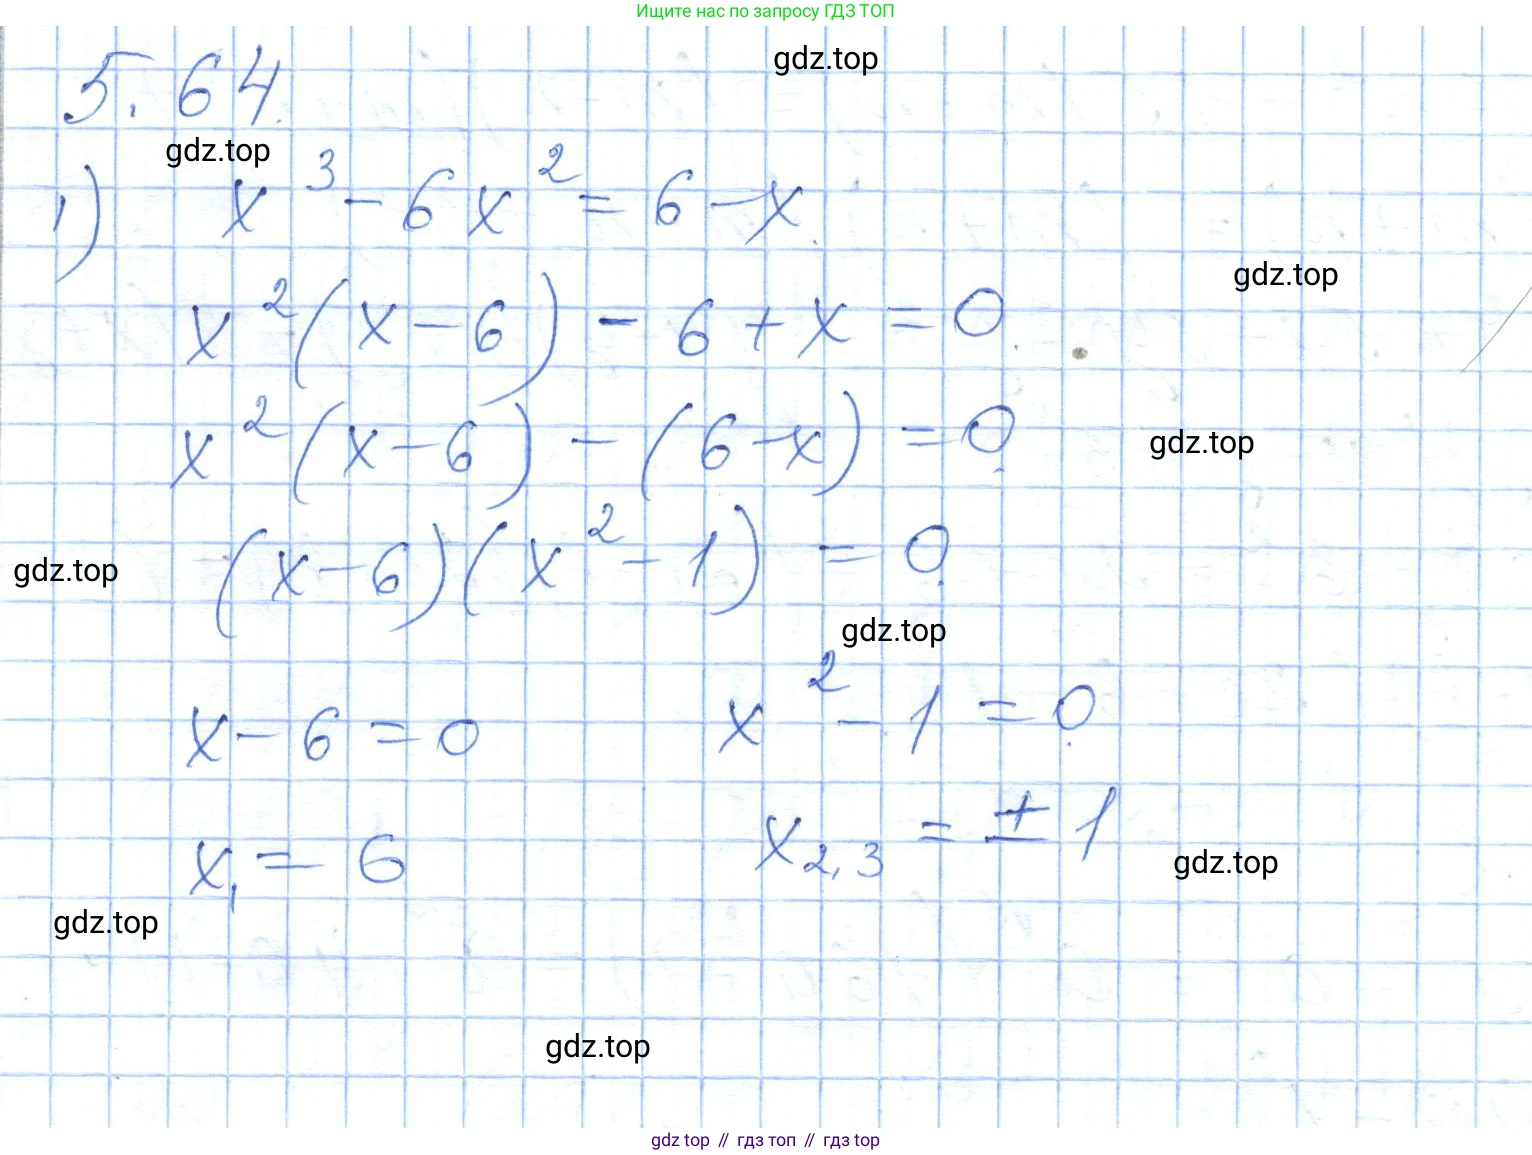 Ищите нас по запросу ГДЗ ТОП
gdz.top
5.64.
gdz.top
1) x³ - 6x² = 6 - x
gdz.top
x²(x - 6) - 6 + x = 0
x²(x - 6) - (6 - x) = 0
gdz.top
(x - 6)(x² - 1) = 0
gdz.top
gdz.top
x - 6 = 0 x² - 1 = 0
x₁ = 6 x₂,₃ = ± 1
gdz.top
gdz.top
gdz.top
gdz top // гдз топ // гдз top